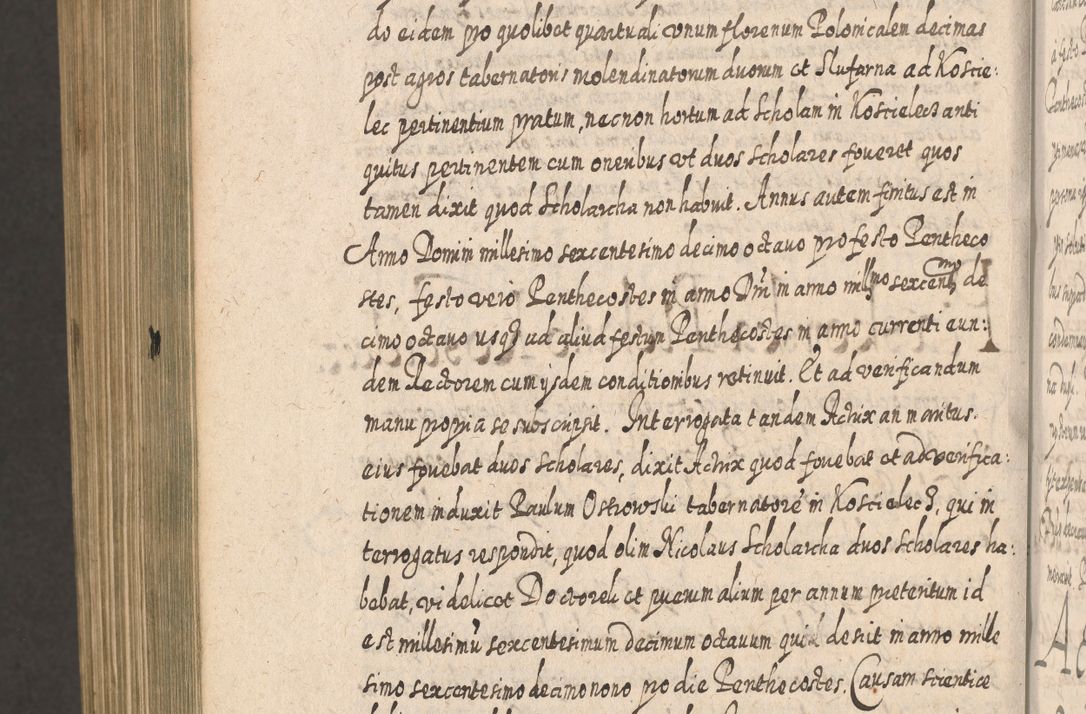 do eidem pro quolibet quartuali unum florenum Polonicalem decimas
post agros tabernatoris molendinatorum duorum et Slusarna ad Koscie:
lec pertinentium pratum, nec non hortum ad Scholam in Koscielecz anti
quitus pertinentem cum oneribus ut duos Scholares foveret quos
tamen dixit quod Scholarcha non habuit. Annus autem finitus est in
Anno Domini millesimo sexcentesimo decimo octavo pro festo Pentheco
stes, festo vero Penthecostes in anno Dni in anno millmo sexcentmo de
cimo octavo usq ad aliud festum Penthecostes in anno currenti eun:
dem Rectorem cum ijsdem conditionibus retinuit. Et ad verificandum
manu propria se subscripsit. Interrogata tandem Actrix an maritus
eius fovebat duos Scholares, dixit Actrix quod fovebat et ad verifica:
tionem induxit Paulum Ostrowski tabernatore in Koscielecz, qui in
terrogatus respondit, quod olim Nicolaus Scholarcha duos Scholares ha:
bebat, videlicet Doctoreli et puerum alium per annum preteritum id
est millesimu sexcentesimum decimum octavum qui desiit in anno mille
simo sexcentesimo decimo nono pro die Penthecostes. Causam scientiæ